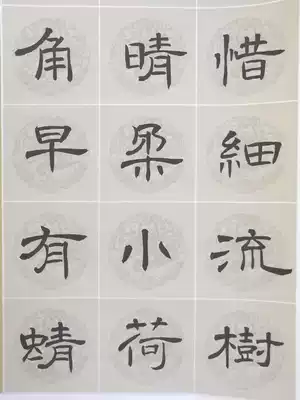 惜細流樹
晴柔小荷
角早有蜻